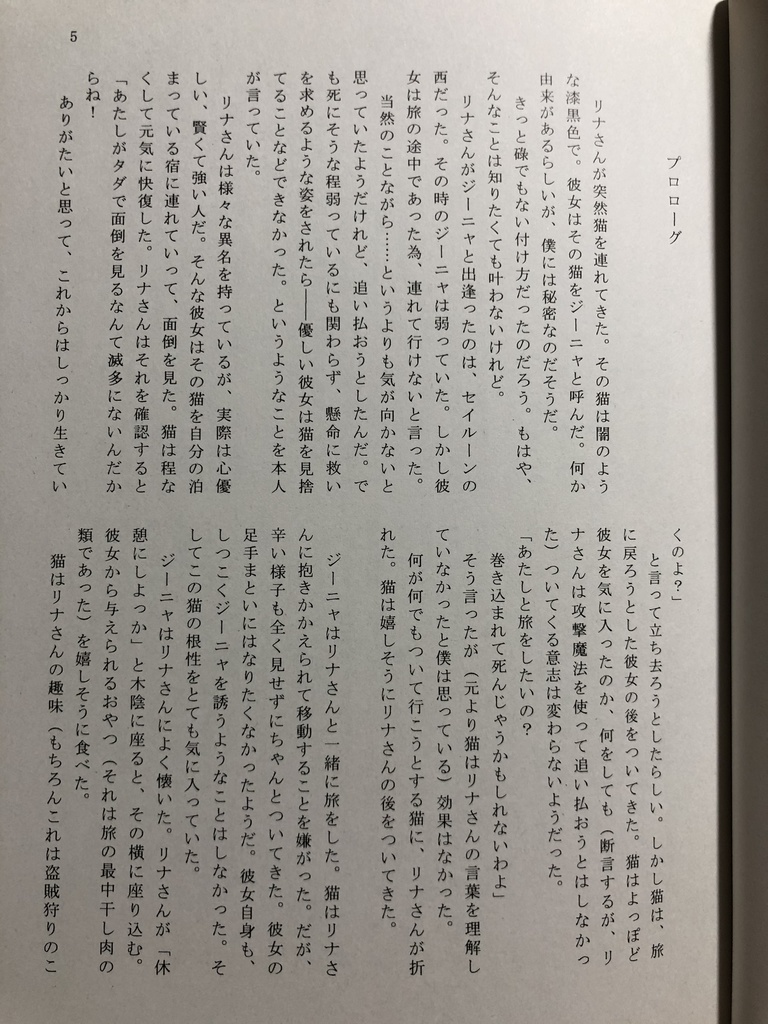 プロローグ
リナさんが突然猫を連れてきた。その猫は闇のよう
な漆黒色で。彼女はその猫をジーニャと呼んだ。何か
由来があるらしいが、僕には秘密なのだそうだ。
きっと碌でもない付け方だったのだろう。もはや、
そんなことは知りたくても叶わないけれど。
リナさんがジーニャと出逢ったのは、セイルーンの
西だった。その時のジーニャは弱っていた。しかし彼
女は旅の途中であった為、連れて行けないと言った。
当然のことながら……というよりも気が向かないと
思っていたようだけれど、追い払おうとしたんだ。で
も死にそうな程弱っているにも関わらず、懸命に救い
を求めるような姿をされたら――優しい彼女は猫を見捨
てることなどできなかった。というようなことを本人
が言っていた。
リナさんは様々な異名を持っているが、実際は心優
しい、賢くて強い人だ。そんな彼女はその猫を自分の泊
まっている宿に連れていって、面倒を見た。猫は程な
くして元気に快復した。リナさんはそれを確認すると
「あたしがタダで面倒を見るなんて滅多にないんだか
らね！
ありがたいと思って、これからはしっかり生きてい
くのよ？」
と言って立ち去ろうとしたらしい。しかし猫は、旅
に戻ろうとした彼女の後をついてきた。猫はよっぽど
彼女を気に入ったのか、何をしても（断言するが、リ
ナさんは攻撃魔法を使って追い払おうとはしなかっ
た）ついてくる意志は変わらないようだった。
「あたしと旅をしたいの？
巻き込まれて死んじゃうかもしれないわよ」
そう言ったが（元より猫はリナさんの言葉を理解し
ていなかったと僕は思っている）効果はなかった。
何が何でもついて行こうとする猫に、リナさんが折
れた。猫は嬉しそうにリナさんの後をついてきた。
ジーニャはリナさんと一緒に旅をした。猫はリナさ
んに抱きかかえられて移動することを嫌がった。だが、
辛い様子も全く見せずにちゃんとついてきた。彼女の
足手まといにはなりたくなかったようだ。彼女自身も、
しつこくジーニャを誘うようなことはしなかった。そ
してこの猫の根性をとても気に入っていた。
ジーニャはリナさんによく懐いた。リナさんが「休
憩にしよっか」と木陰に座ると、その横に座り込む。
彼女から与えられるおやつ（それは旅の最中干し肉の
類であった）を嬉しそうに食べた。
猫はリナさんの趣味（もちろんこれは盗賊狩りのこ
5